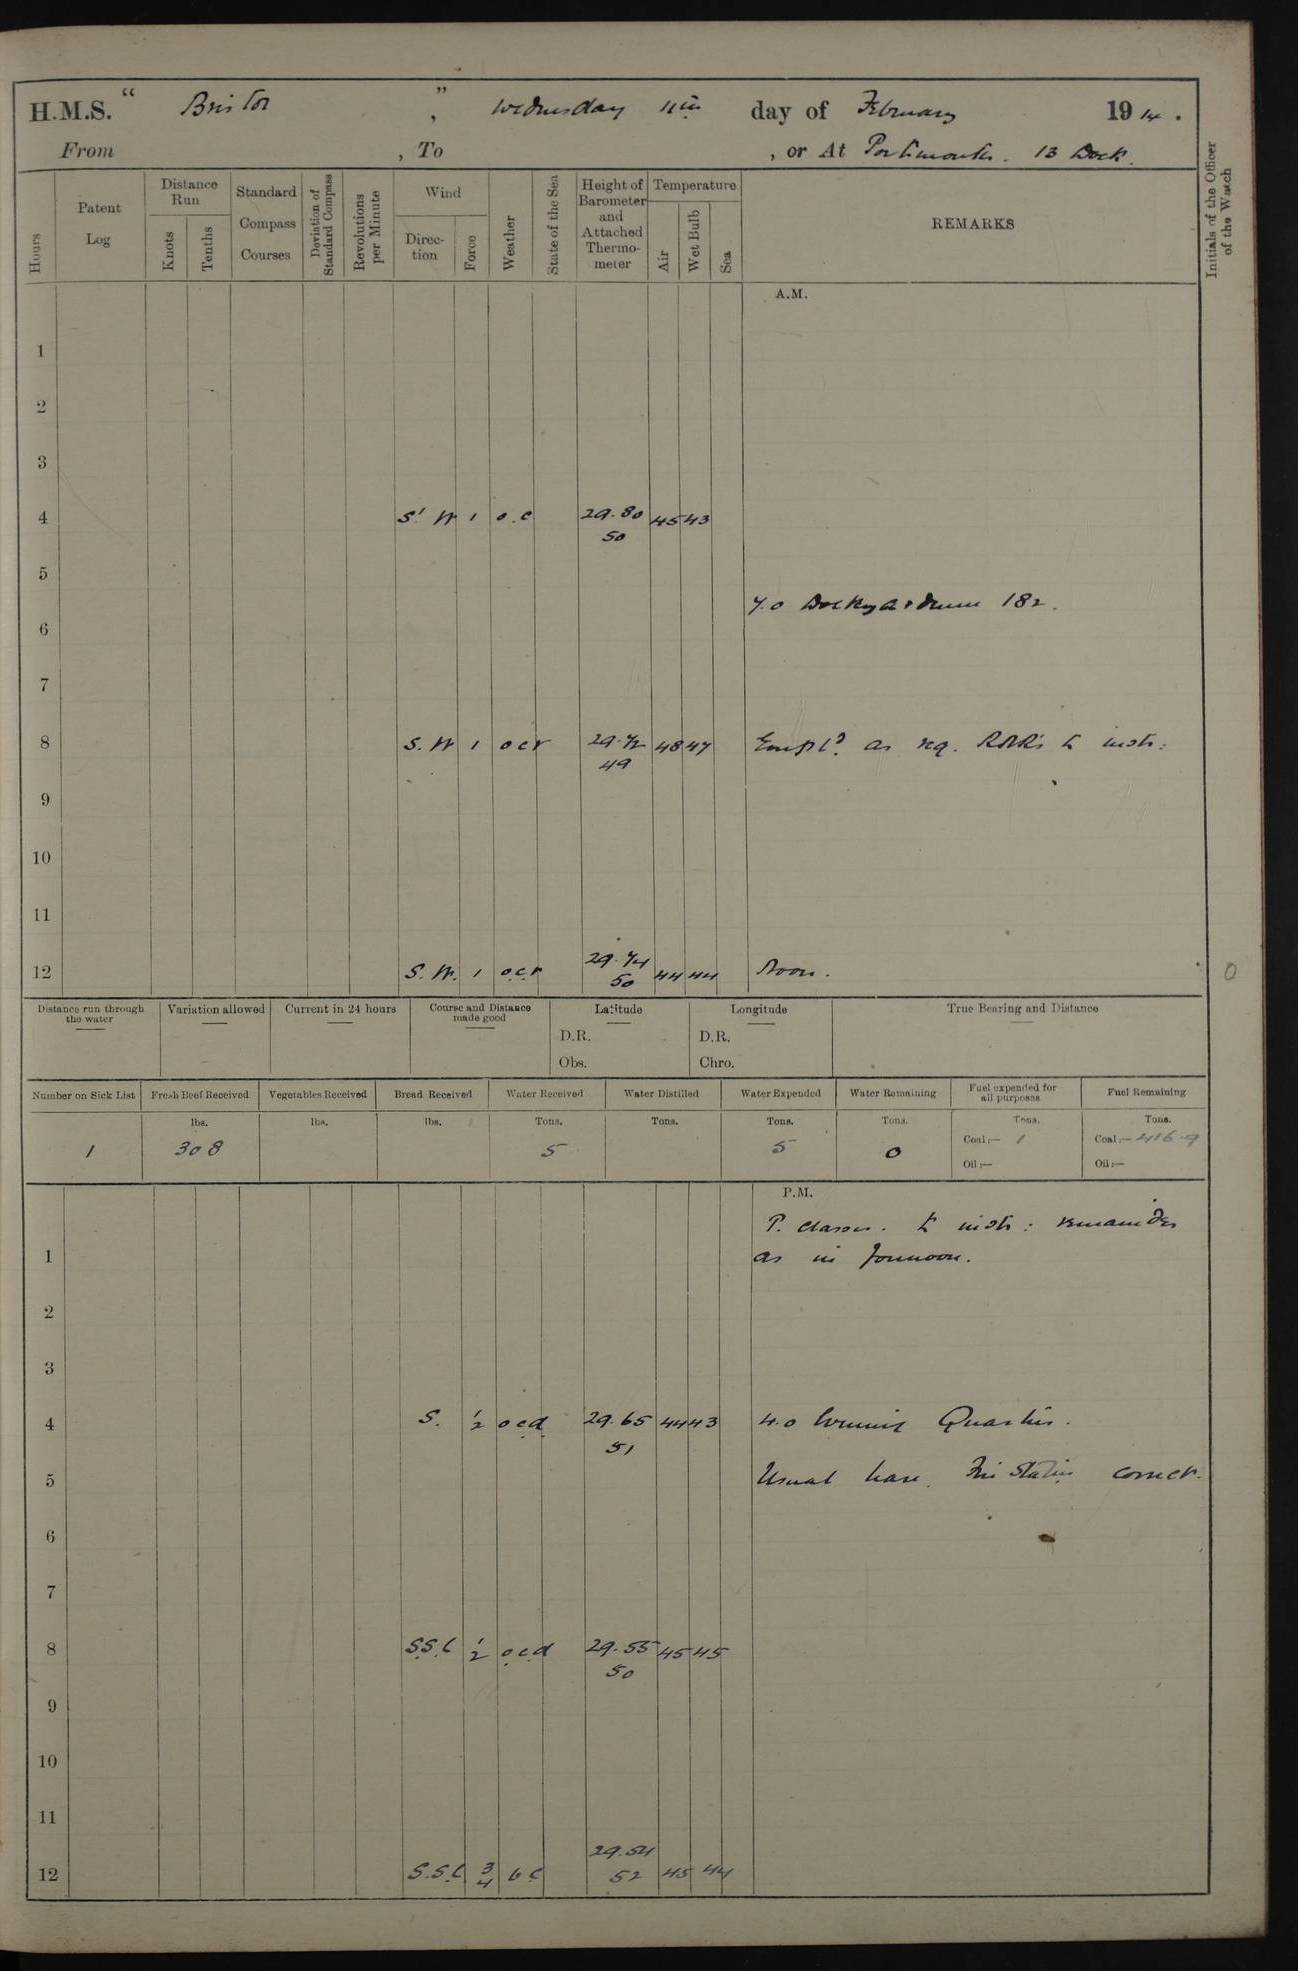 H.M.S. " Bristol ", Wednesday 11th day of February 1914.
From , To , or At Portsmouth. 13 Dock.
Hours
Patent Log
Distance Run
Knots
Tenths
Standard Compass Courses
Deviation of Standard Compass
Revolutions per Minute
Wind
Direction
Force
Weather
State of the Sea
Height of Barometer and Attached Thermometer
Temperature
Air
Wet Bulb
Sea
REMARKS
Initials of the Officer of the Watch
A.M.
1
2
3
4 S'W 1 o.c 29.80 45 43
50
5
7.0 Dockyardmen 182.
6
7
8 S.W 1 ocr 29.72 48 47 Empld. as req. RNR's to instr:
49
9
10
11
12 S.W. 1 o.c.r 29.74 44 44 Noon. 0
50
Distance run through the water
Variation allowed
Current in 24 hours
Course and Distance made good
Latitude
D.R.
Obs.
Longitude
D.R.
Chro.
True Bearing and Distance
Number on Sick List
Fresh Beef Received
Vegetables Received
Bread Received
Water Received
Water Distilled
Water Expended
Water Remaining
Fuel expended for all purposes
Fuel Remaining
lbs. lbs. lbs. Tons. Tons. Tons. Tons. Tons. Tons.
1 308 5 5 0 Coal:— 1 Coal:— 416.9
Oil:— Oil:—
P.M.
P. Classes. to instr: remainder
1 as in forenoon.
2
3
4 S. 1/2 o c d 29.65 44 43 4.0 Evening Quarters.
51
5 Usual leave. Fire Stations correct.
6
7
8 S.S.E 1/2 o.c.d 29.55 45 45
50
9
10
11
12 S.S.E 3/4 b c 29.54 45 44
52